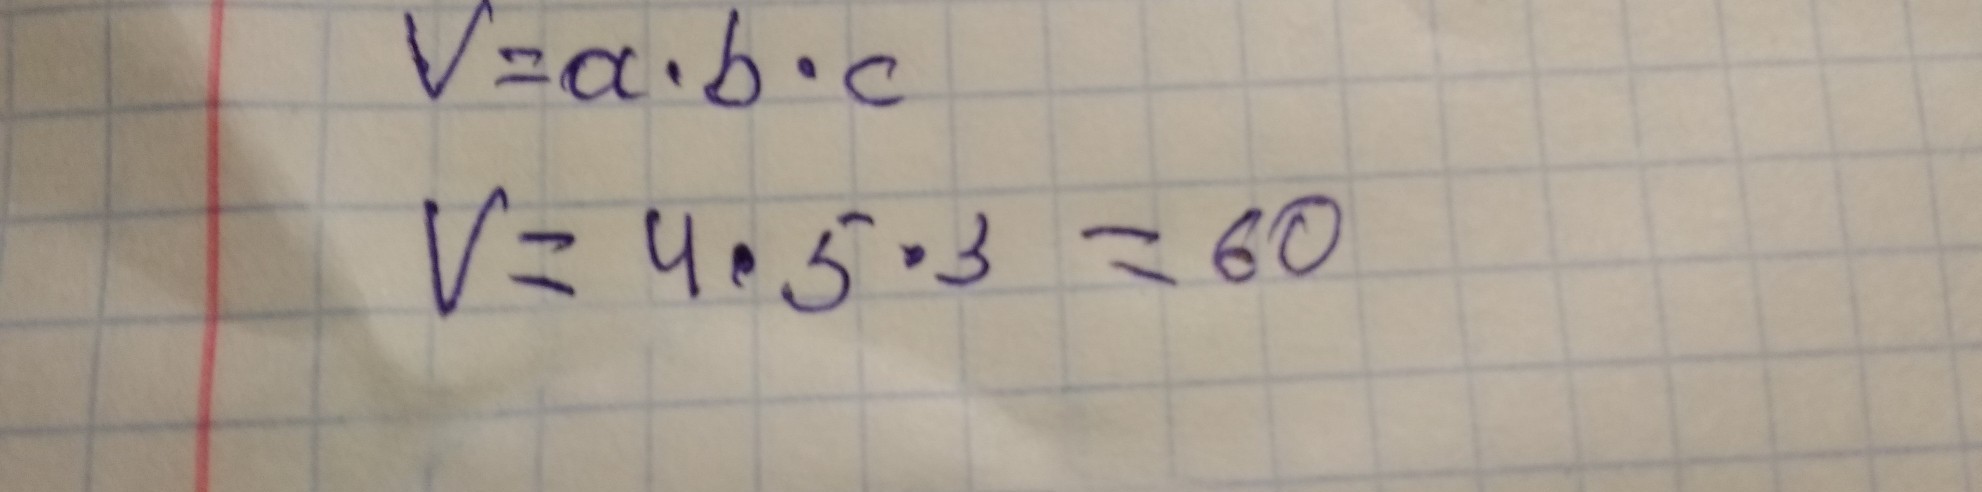 V=a·b·c
V= 4·5·3 = 60